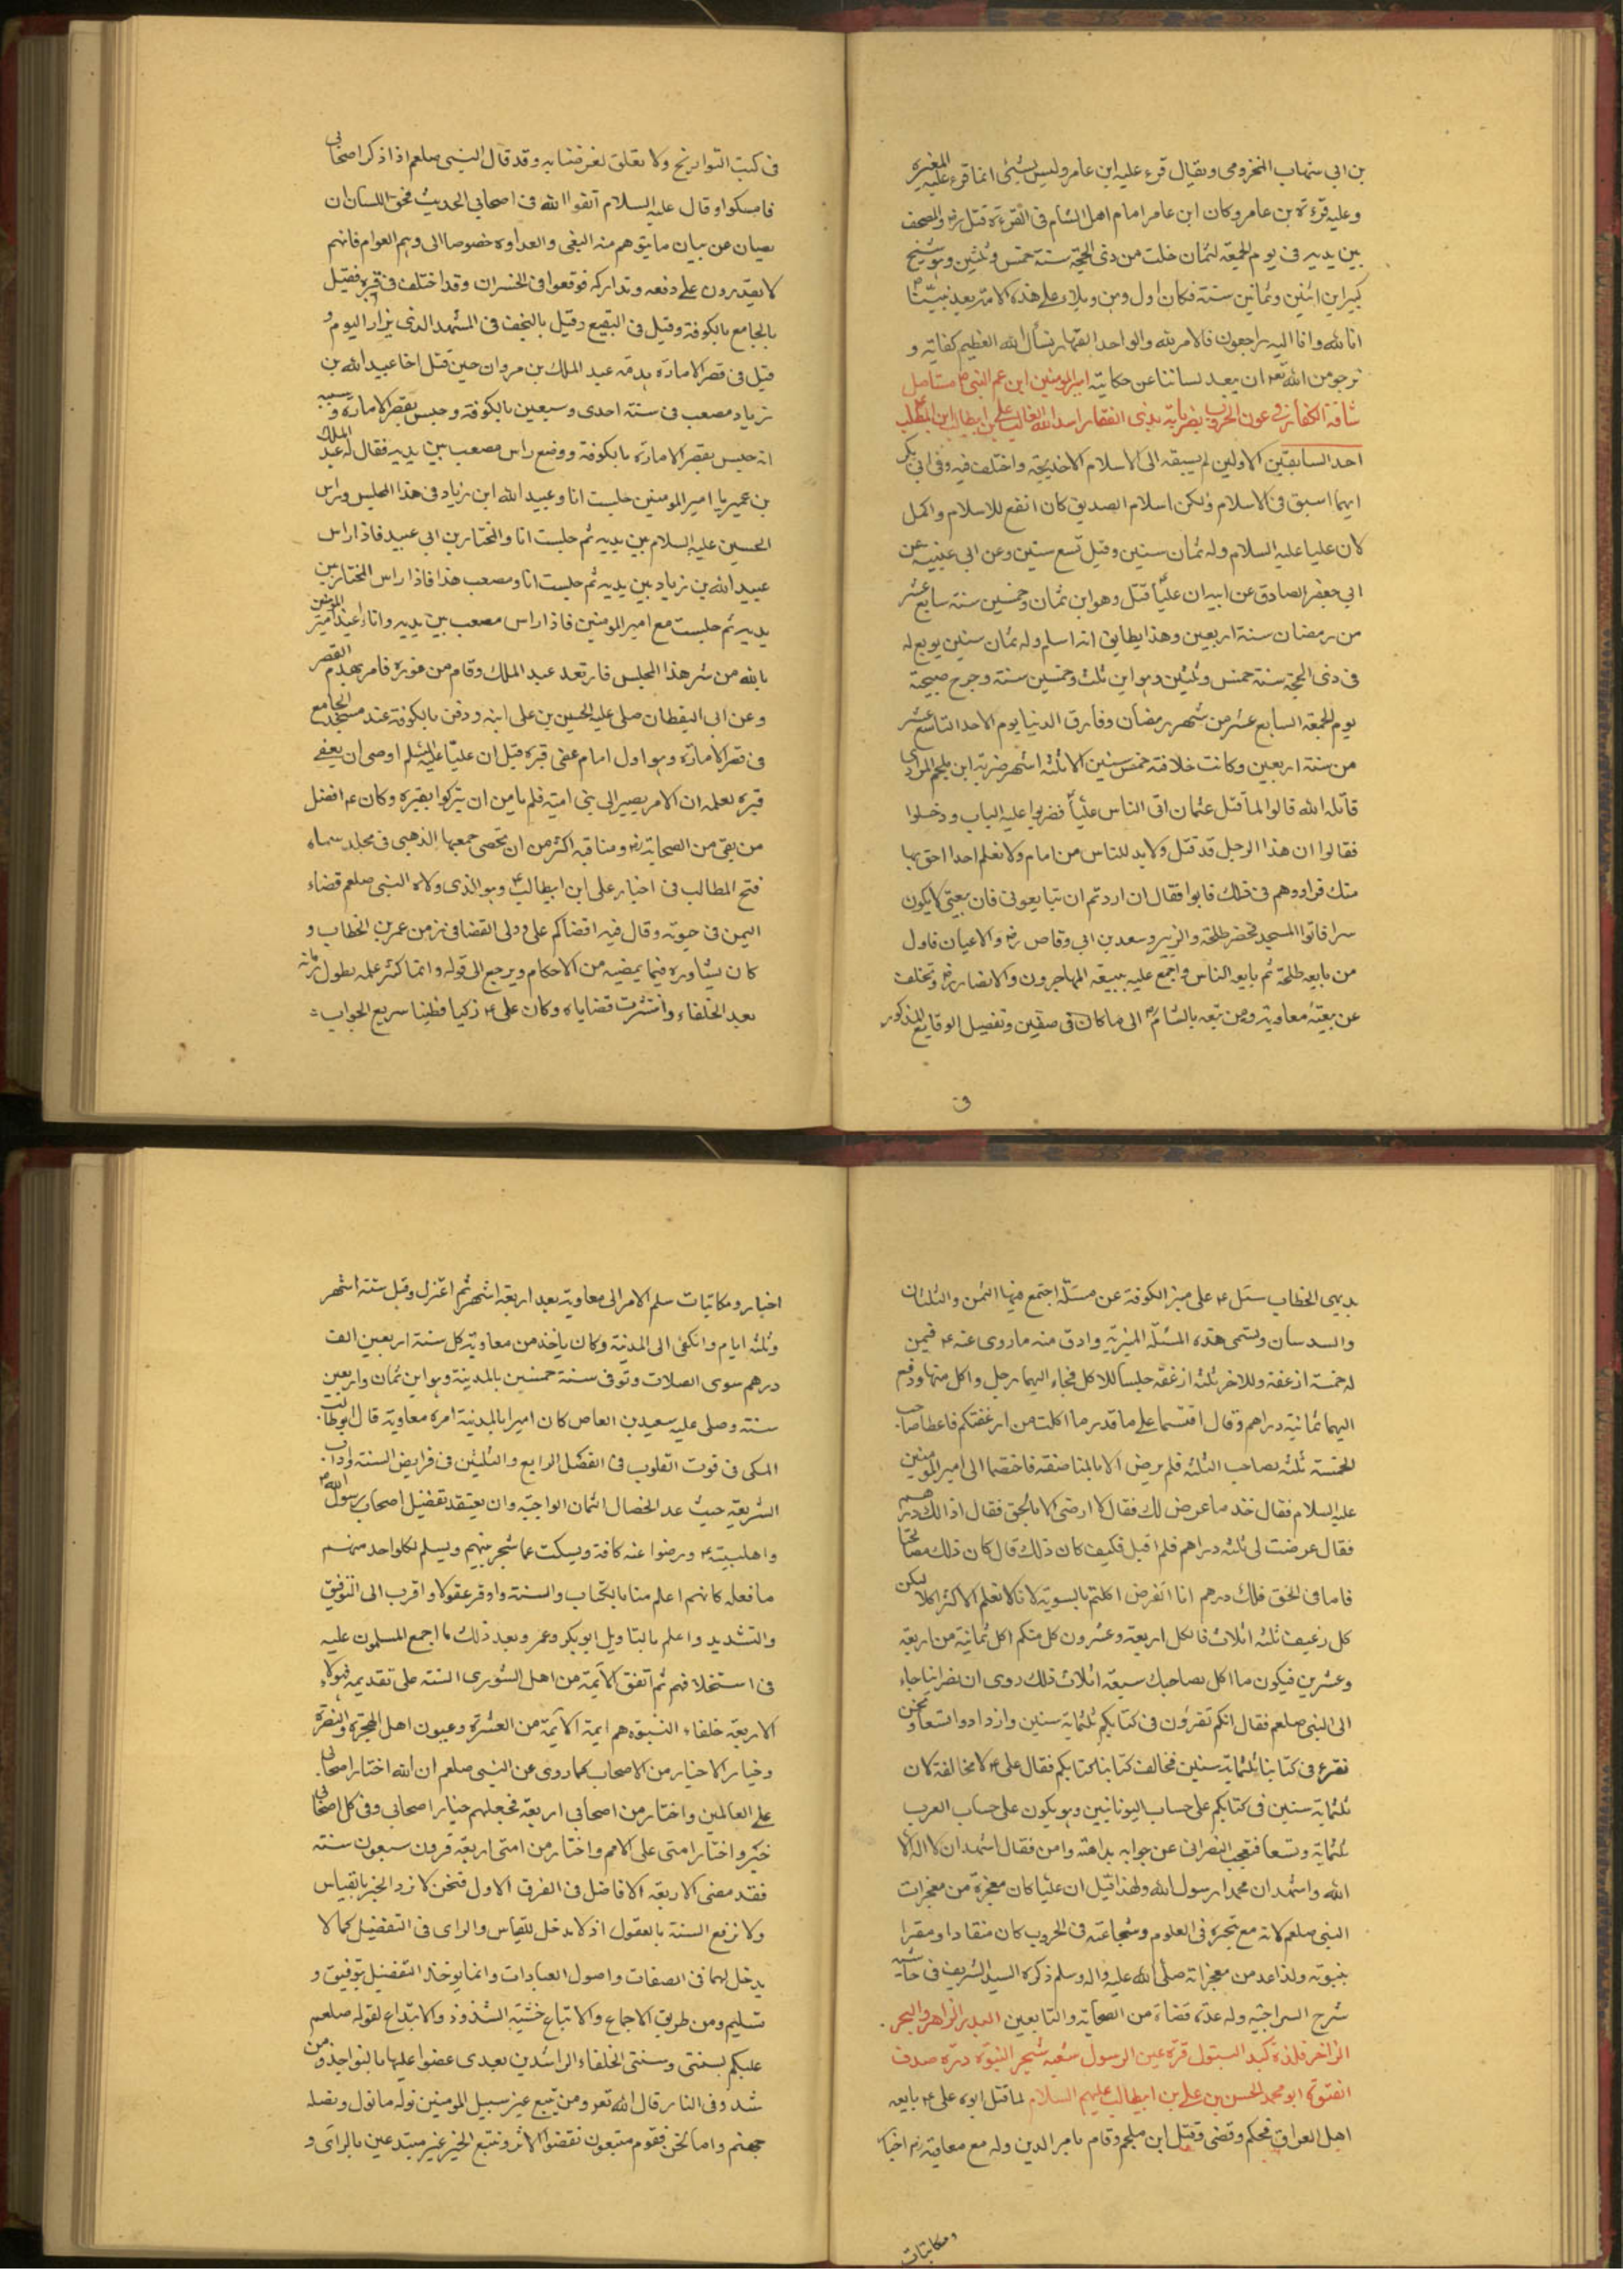 بن ابي شهاب المخزومى ويقال قرء عليه ابن عامر وليس بشئ انما قرء عليه المغيرة
وعليه قرءة بن عامر وكان ابن عامر امام اهل الشام فى القرءة قتل رضه والمصحف
بين يديه فى يوم الجمعة لثمان خلت من ذى الحجة سنة خمس وثلثين وهو شيخ
كبير ابن اثنين وثمانين سنة فكان اول وهن وبلاء على هذه الامة بعد نبيّنا
انا لله وانا اليه راجعون فالامر لله والواحد القهار نسأل الله العظيم كفايته و
نرجو من الله تعه ان يعيد لساننا عن حكايته امير المومنين ابن عم النبى ص مستاصل
شافة الكفار فى عون الحروب بضرباته بذى الفقار اسد الله الغالب على بن ابيطالب ابن عبد المطلب
احد السابقين الاولين لم يسبقه الى الاسلام الا خديجة واختلف فيه وفى ابى بكر
ايهما اسبق فى الاسلام ولكن اسلام الصديق كان انفع للاسلام واكمل
لان عليا عليه السلام وله ثمان سنين وقيل تسع سنين وعن ابى عيينة عن
ابي جعفر الصادق عن ابيه ان عليّا قتل وهو ابن ثمان وخمسين سنة سابع عشر
من رمضان سنة اربعين وهذا يطابق انه اسلم وله ثمان سنين بويع له
فى ذى الحجة سنة خمس وثلثين وهو ابن ثلث وخمسين سنة وجرح صبيحة
يوم الجمعة السابع عشر من شهر رمضان وفارق الدنيا يوم الاحد التاسع عشر
من سنة اربعين وكانت خلافته خمس سنين الا ثلثة اشهر ضربه ابن ملجم المرادى
قاتله الله قالوا لما قتل عثمان اتى الناس عليّاً فضربوا عليه الباب ودخلوا
فقالوا ان هذا الرجل قد قتل ولا بد للناس من امام ولا نعلم احدا احق بها
منك فراودهم فى ذلك فابوا فقال ان اردتم ان تبايعونى فان بيعتى لا يكون
سرا فاتوا المسجد فحضر طلحة والزبير وسعد بن ابي وقاص رضه والاعيان فاول
من بايعه طلحة ثم بايعه الناس واجمع عليه ببيعة المهاجرون والانصار رضه وتخلف
عن بيعته معاوية ومن تبعه بالشام الى ما كان فى صفين وتفصيل الوقايع المذكور
ق
فى كتب التواريخ ولا تعلق لغرضنا به وقد قال النبى صلعم اذا ذكر اصحابى
فامسكوا وقال عليه السلام اتقوا الله فى اصحابي الحديث فحق اللسان ان
يصان عن بيان ما يتوهم منه البغى والعداوة خصوصا الى وهم العوام فانهم
لا يقدرون على دفعه وتداركه فوقعوا فى الخسران وقد اختلف فى قبره فقيل
بالجامع بالكوفة وقيل فى البقيع وقيل بالنجف فى المشهد الذى يزار اليوم و
قيل فى قصر الامارة هدمه عبد الملك بن مروان حين قتل اخا عبيد الله بن
زياد مصعب فى سنة احدى وسبعين بالكوفة وجلس بقصر الامارة وسببه
انه جلس بقصر الامارة بالكوفة ووضع راس مصعب بين يديه فقال له عبد الملك
بن عمير يا امير المومنين جلست انا وعبيد الله ابن زياد فى هذا المجلس وراس
الحسين عليه السلام بين يديه ثم جلست انا والمختار بن ابى عبيد فاذا راس
عبيد الله بن زياد بين يديه ثم جلست انا ومصعب هذا فاذا راس المختار بين
يديه ثم جلست مع امير المومنين فاذا راس مصعب بين يديه وانا اعيذ امير المومنين
بالله من شر هذا المجلس فارتعد عبد الملك وقام من فوره فامر بهدم القصر
وعن ابى اليقظان صلى عليه الحسين بن على ابنه ودفن بالكوفة عند مسجد الجامع
فى قصر الامارة وهو اول امام عفى قبره قيل ان عليّا عليه السلم اوصى ان يعفى
قبره لعلمه ان الامر يصير الى بنى امية فلم يامن ان يتركوا بقبره وكان ع افضل
من بقى من الصحابة رضه ومناقبه اكثر من ان تحصى جمعها الذهبى فى مجلد سماه
فتح المطالب فى اخبار على ابن ابيطالب ع وهو الذى ولاه النبى صلعم قضاء
اليمن فى حيوته وقال فيه اقضاكم على وولى القضا فى زمن عمر بن الخطاب و
كان يشاوره فيما يمضيه من الاحكام ويرجع الى قوله وانما كثر علمه بطول زمانه
بعد الخلفاء وانتشرت قضاياه وكان على ع ذكيا فطينا سريع الجواب
بديهى الخطاب سئل ع على منبر الكوفة عن مسئلة اجتمع فيها الثمن والثلثان
والسدسان وتسمى هذه المسئلة المنبرية وادق منه ما روى عنه ع فيمن
له خمسة ارغفة وللاخر ثلثة ارغفة جلسا للاكل فجاء اليهما رجل واكل منها ودفع
اليهما ثمانية دراهم وقال اقتسما على ما قدر ما اكلت من ارغفتكم فاعطا صاحب
الخمسة ثلثة لصاحب الثلثة فلم يرض الا بالمناصفة فاختصما الى امير المومنين
عليه السلام فقال خذ ما عرض لك فقال لا ارضى الا بالحق فقال اذا لك درهم
فقال عرضت لى ثلثة دراهم فلم اقبل فكيف كان ذلك قال كان ذلك مصالحا
فاما فى الحق فلك درهم انا انفرض اكلتم بالسوية لانا لا نعلم الاكثر اكلا ليكن
كل رغيف ثلثة اثلاث فالكل اربعة وعشرون كل منكم اكل ثمانية من اربعة
وعشرين فيكون ما اكل بصاحبك سبعة اثلاث ذلك روى ان نصرانيا جاء
الى النبى صلعم فقال انكم تقرؤن فى كتابكم ثلثماية سنين وازدادوا تسعا ونحن
نقرء فى كتابنا ثلثماية سنين فخالف كتابنا كتابكم فقال على ع لا مخالفة لان
ثلثماية سنين فى كتابكم على حساب اليونانيين وهو يكون على حساب العرب
ثلثماية وتسعا فتعجب النصرانى عن جوابه بداهته وامن فقال اشهد ان لا اله الا
الله واشهد ان محمدا رسول الله ولهذا قيل ان عليا كان معجزة من معجزات
النبى صلعم لانه مع تبحره فى العلوم وشجاعته فى الحروب كان منقادا ومقرا
بنبوته ولذا عد من معجزاته صلى الله عليه واله وسلم ذكره السيد الشريف فى حاشية
شرح السراجية وله عدة قضاة من الصحابة والتابعين البدر الزاهر والبحر
الزاخر فلذة كبد البتول قرة عين الرسول شعبة شجر النبوة درّة صدف
الفتوة ابو محمد الحسن بن على بن ابيطالب عليهم السلام لما قتل ابوه على ع بايعه
اهل العراق فحكم وقضى وقتل ابن ملجم وقام بامر الدين وله مع معاوية رضه اخبار
ومكاتبات
اخبار ومكاتبات سلم الامر الى معاوية بعد اربعة اشهر ثم اعتزل وقيل ستة اشهر
وثلثة ايام وانكفى الى المدينة وكان ياخذ من معاوية كل سنة اربعين الف
درهم سوى الصلات وتوفى سنة خمسين بالمدينة وهو ابن ثمان واربعين
سنة وصلى عليه سعيد بن العاص كان اميرا بالمدينة امره معاوية قال ابو طالب
المكى فى قوت القلوب فى الفصل الرابع والثلثين فى فرايض السنة واداب
الشريعة حيث عد الخصال الثمان الواجبة وان يعتقد تفضيل اصحاب رسول الله ص
واهلبيته ع ورضوا عنه كافة ويسكت عما شجر بينهم ويسلم لكل واحد منهم
ما فعله كانهم اعلم منا بالكتاب والسنة واوفر عقولا واقرب الى التوفيق
والتشديد واعلم بالتاويل ابو بكر وعمر وبعد ذلك ما اجمع المسلمون عليه
فى استخلافهم ثم اتفق الايمة من اهل الشورى الستة على تقديمه فهولاء
الاربعة خلفاء النبوة هم ايمة الايمة من العشرة وعيون اهل الهجرة والنصرة
وخيار الاخيار من الاصحاب كما روى عن النبى صلعم ان الله اختار اصحابى
على العالمين واختار من اصحابي اربعة فجعلهم خيار اصحابى وفى كل اصحابى
خير واختار امتى على الامم واختار من امتى اربعة قرون سبعون سنة
فقد مضى الاربعة الافاضل فى القرن الاول فنحن لا نرد الخبر بالقياس
ولا نرفع السنة بالعقول اذ لا مدخل للقياس والراى فى التفضيل كما لا
يدخل لهما فى الصفات واصول العبادات وانما يوخذ التفضيل بتوفيق و
تسليم ومن طريق الاجماع والاتباع خشية الشذوذ والابتداع لقوله صلعم
عليكم بسنتى وسنتى الخلفاء الراشدين بعدى عضوا عليها بالنواجذ ومن
شذ وفى النار قال الله تعه ومن يتبع غير سبيل المومنين نوله ما تولى ونصله
جهنم واما نحن فقوم متبعون نقتفوا الاثر ونتبع الخبر غير مبتدعين بالراى و